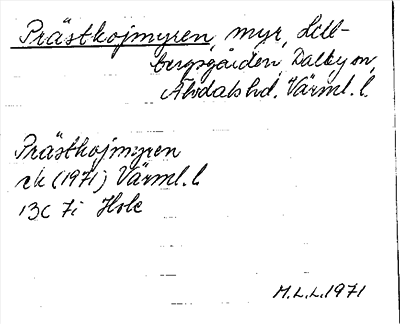 Prästkojmyren, myr, Lill-
bergsgården, Dalby sn,
Älvdals hd. Värml. l.
Prästkojmyren
ek (1971) Värml. l.
13C 7i Hole
M.L.L. 1971